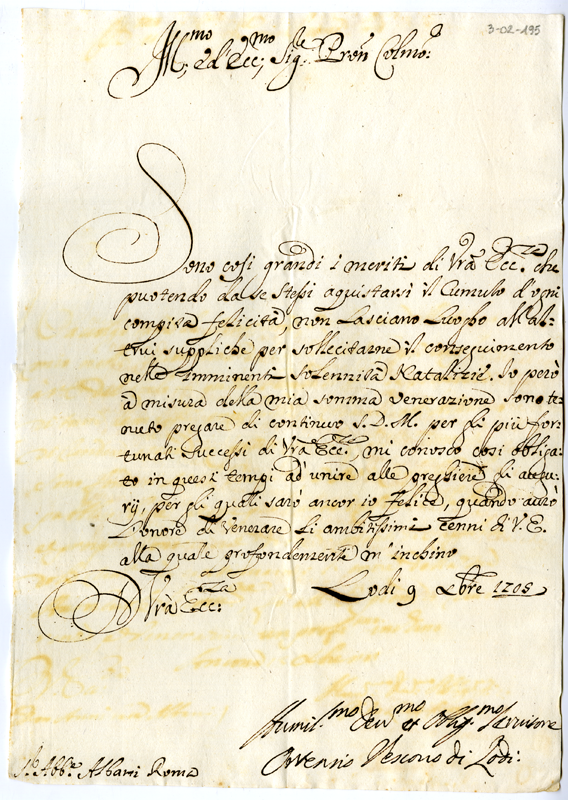 3-02-195
Ill.mo, ed Ecc.mo Sig.re Pron Colmo:
Sono così grandi i meriti di Vrà Ecc.za che
puotendo da se stessi aquistarsi il Cumulo d'ogni
compita felicità, non lasciano luogho all'al-
trui suppliche per sollecitarne il conseguimento
nelle imminenti solennità Natalizie. Io però
à misura della mia somma venerazione sono te-
nuto pregare di continuo S. D. M. per gli più for-
tunati successi di Vrà Ecc.za, mi conosco così obliga-
to in questi tempi ad unire alle preghiere gli augu-
rij, per gli quali sarò ancor io felice, quando avrò
l'onore di venerare li ambitissimi cenni di V. E.
alla quale profondamente m'inchino
D Vrà Ecc.za Lodi 9 Xbre 1705
Humil.mo Dev.mo et Oblig.mo Servitore
Vescovo di Lodi:
S.r Abb.e Albani Roma